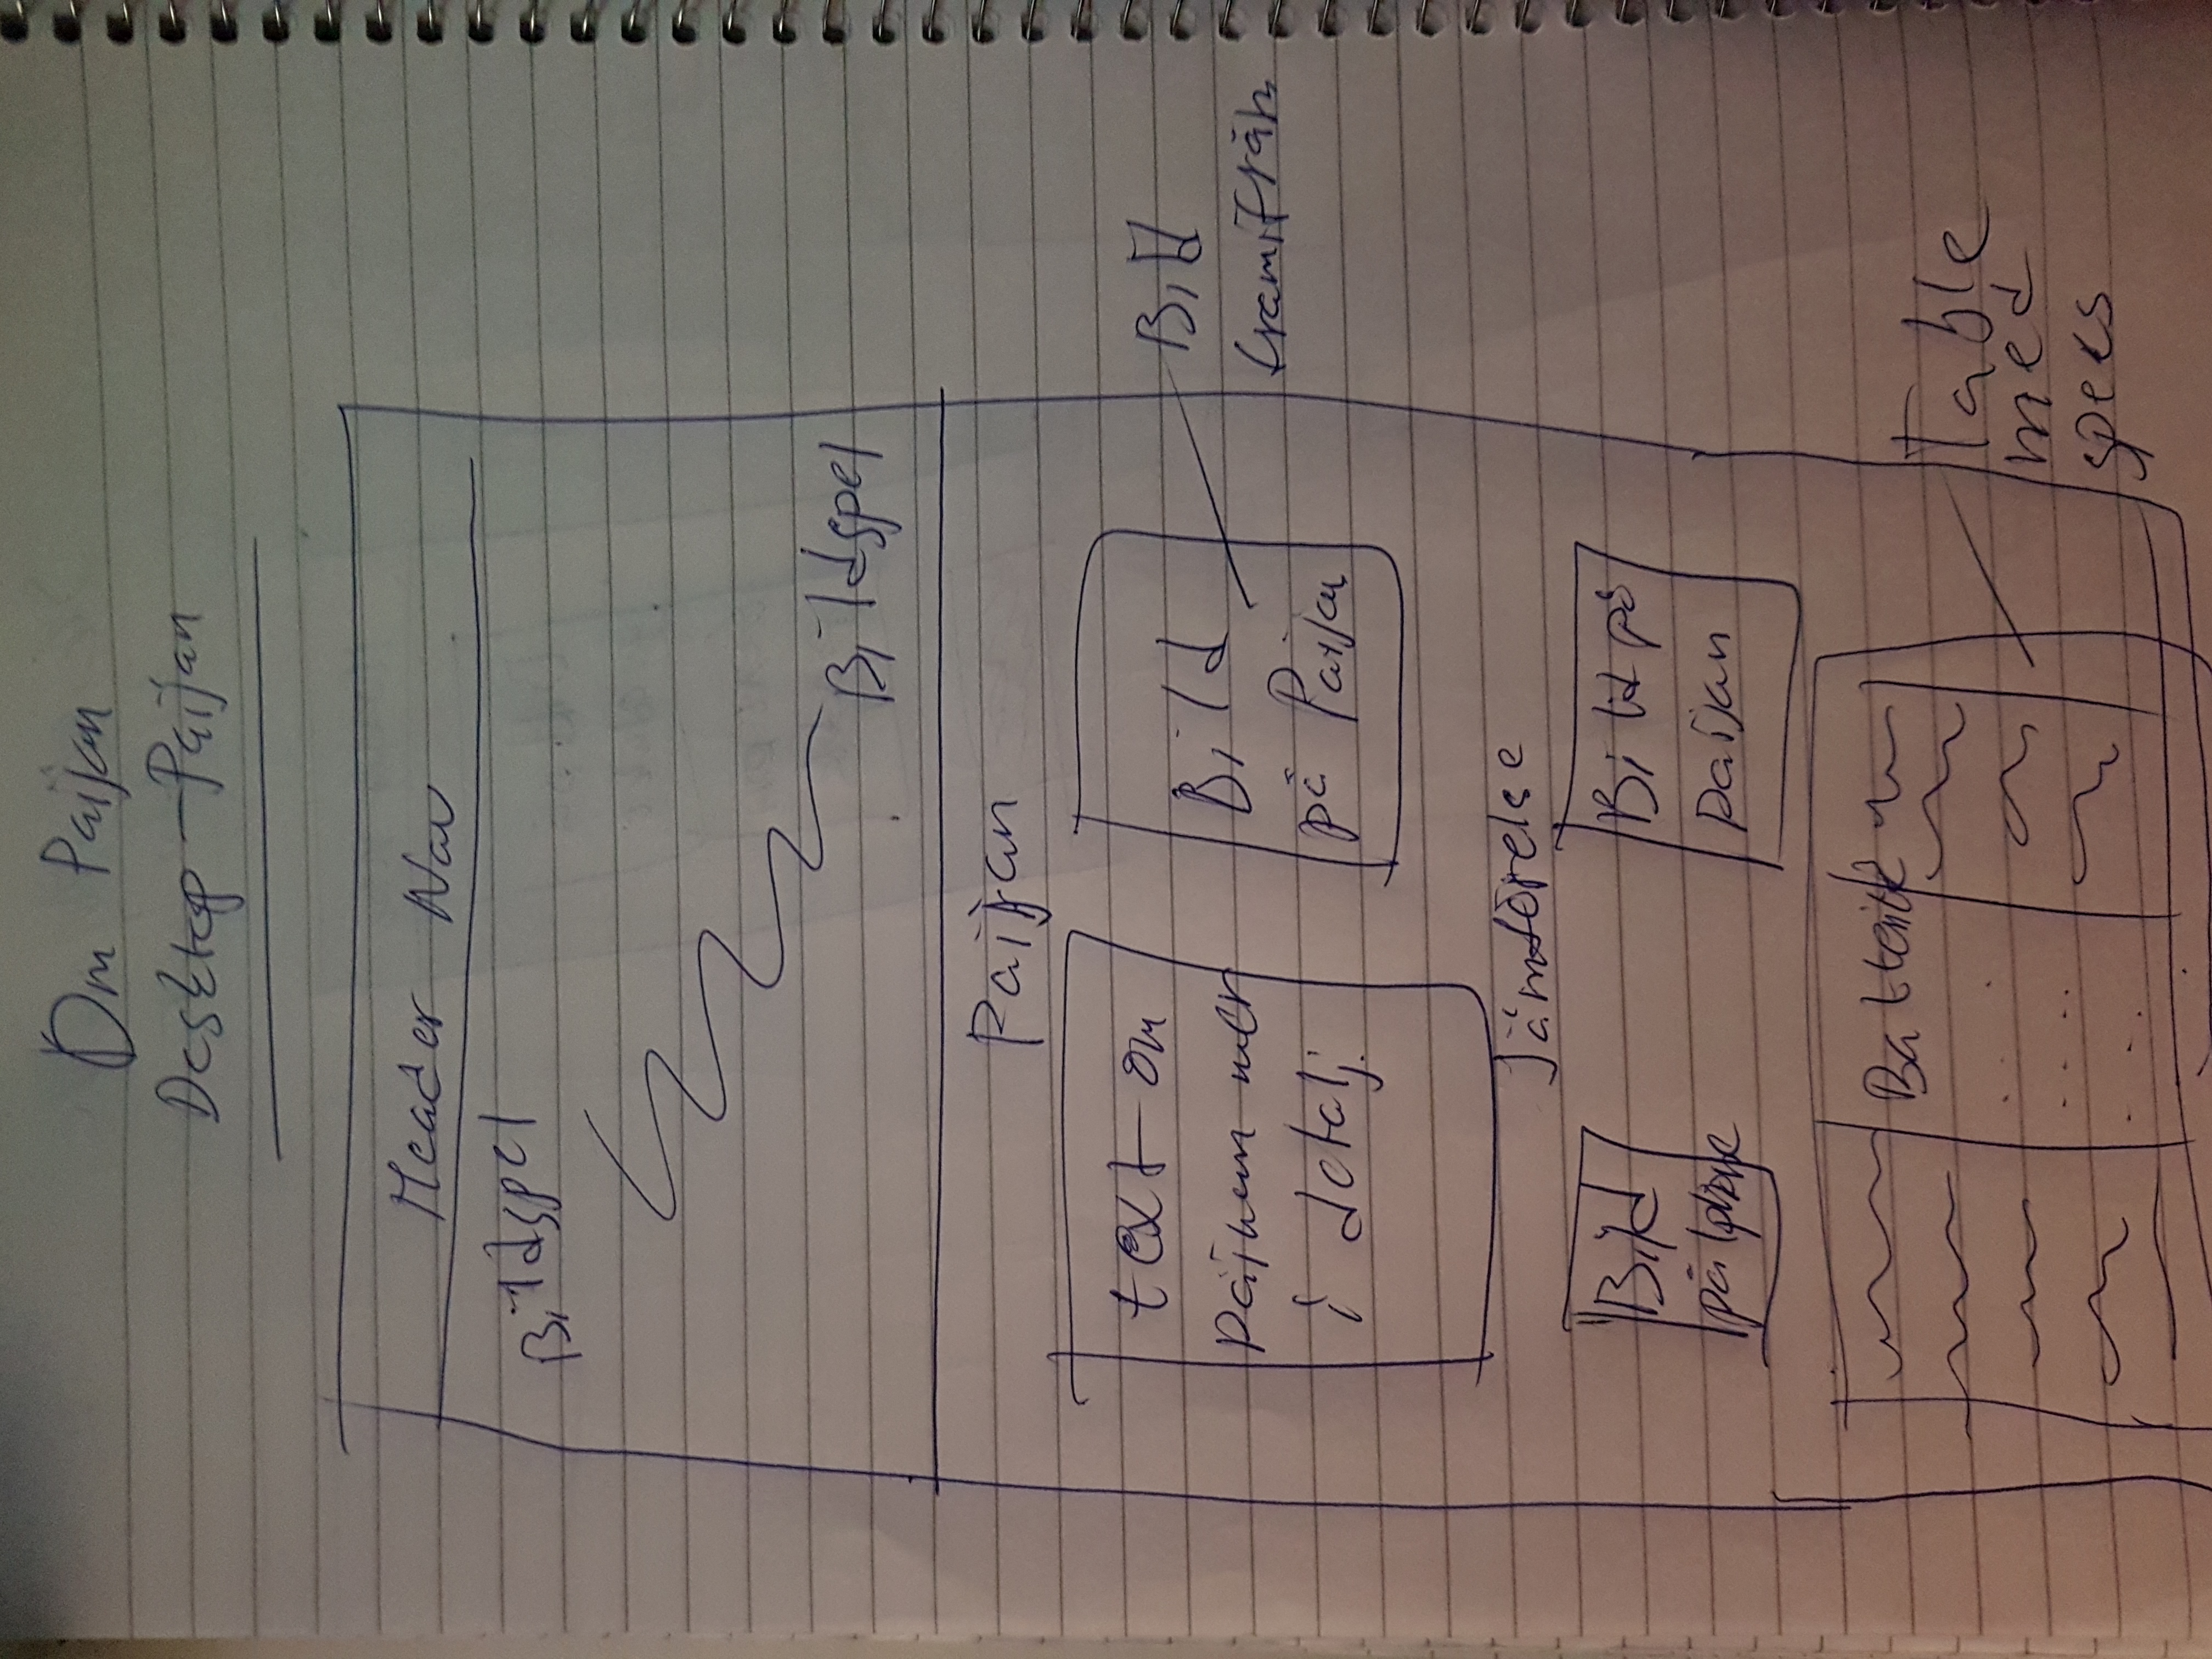 Om Paijan
Desktop - Paijan
Header Nav
Bildspel
Bildspel
Paijan
text om
mer
i detalj.
Bild
på Paijan
Bild
framifrån
Jämförelse
Bild
på Iphone
Bild på
paijan
Batteri
Table
med
specs